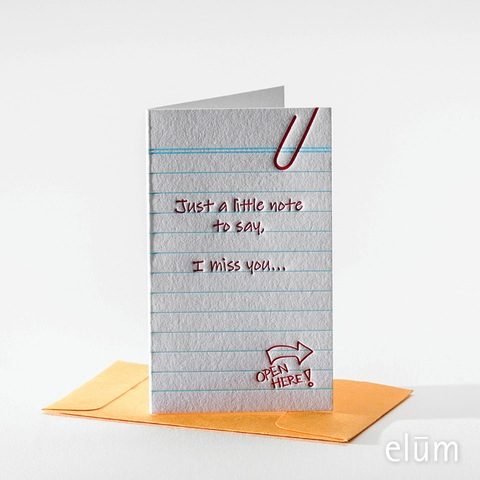 Just a little note
to say,
I miss you...
OPEN
HERE!
elūm